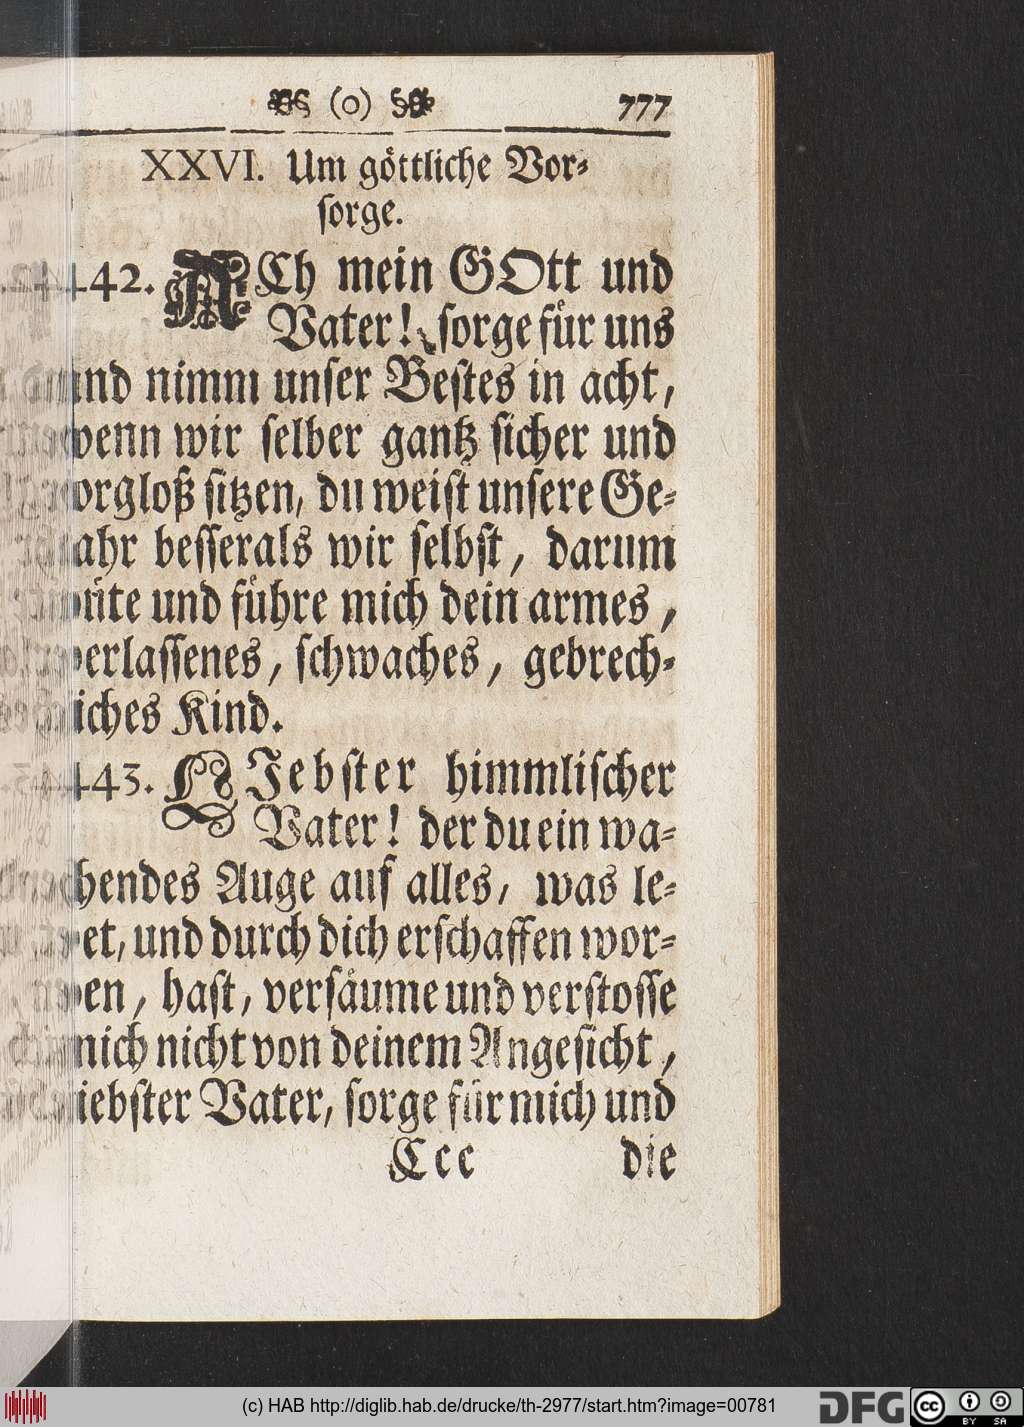 (o) 777
XXVI. Um göttliche Vor⸗
ſorge.
442. ACh mein GOtt und
Vater! ſorge für uns
und nimm unſer Beſtes in acht,
wenn wir ſelber gantz ſicher und
ſorgloß ſitzen, du weiſt unſere Ge⸗
fahr beſſerals wir ſelbſt, darum
hüte und führe mich dein armes,
verlaſſenes, ſchwaches, gebrech⸗
liches Kind.
443. LJebſter himmliſcher
Vater! der du ein wa⸗
chendes Auge auf alles, was le⸗
bet, und durch dich erſchaffen wor⸗
den, haſt, verſäume und verſtoſſe
mich nicht von deinem Angeſicht,
liebſter Vater, ſorge für mich und
Ccc die
(c) HAB http://diglib.hab.de/drucke/th-2977/start.htm?image=00781
DFG
cc BY SA